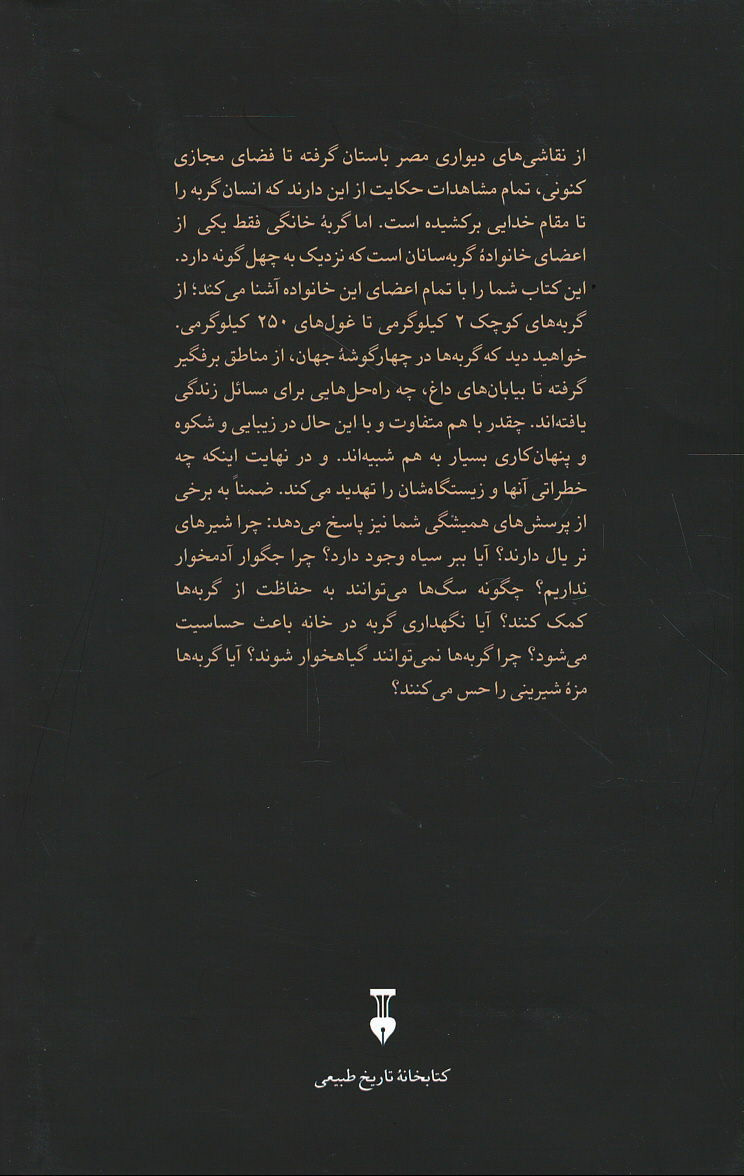 از نقاشی‌های دیواری مصر باستان گرفته تا فضای مجازی
کنونی، تمام مشاهدات حکایت از این دارند که انسان گربه را
تا مقام خدایی برکشیده است. اما گربهٔ خانگی فقط یکی از
اعضای خانوادهٔ گربه‌سانان است که نزدیک به چهل گونه دارد.
این کتاب شما را با تمام اعضای این خانواده آشنا می‌کند؛ از
گربه‌های کوچک ۲ کیلوگرمی تا غول‌های ۲۵۰ کیلوگرمی.
خواهید دید که گربه‌ها در چهارگوشهٔ جهان، از مناطق برفگیر
گرفته تا بیابان‌های داغ، چه راه‌حل‌هایی برای مسائل زندگی
یافته‌اند. چقدر با هم متفاوت و با این حال در زیبایی و شکوه
و پنهان‌کاری بسیار به هم شبیه‌اند. و در نهایت اینکه چه
خطراتی آنها و زیستگاه‌شان را تهدید می‌کند. ضمناً به برخی
از پرسش‌های همیشگی شما نیز پاسخ می‌دهد: چرا شیرهای
نر یال دارند؟ آیا ببر سیاه وجود دارد؟ چرا جگوار آدمخوار
نداریم؟ چگونه سگ‌ها می‌توانند به حفاظت از گربه‌ها
کمک کنند؟ آیا نگهداری گربه در خانه باعث حساسیت
می‌شود؟ چرا گربه‌ها نمی‌توانند گیاهخوار شوند؟ آیا گربه‌ها
مزهٔ شیرینی را حس می‌کنند؟
کتابخانهٔ تاریخ طبیعی